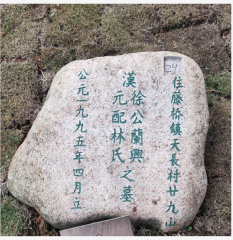 住藤桥鎮天長村廿九山
漢徐公蘭興
元配林氏
之墓
公元一九九五年四月立